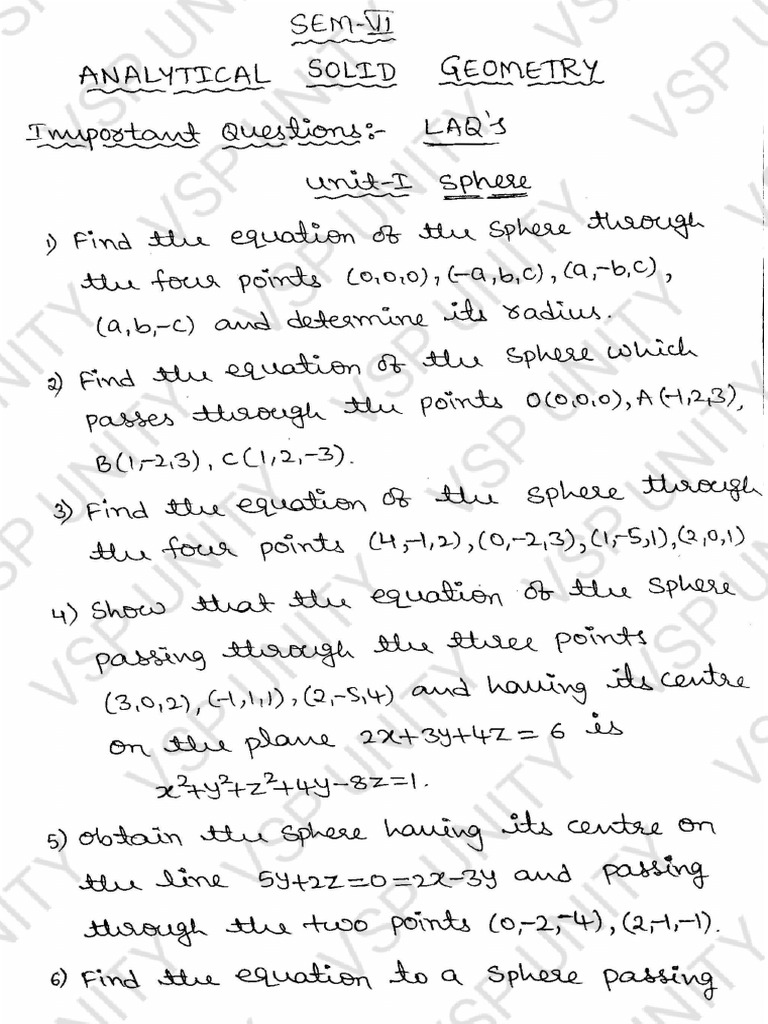 SEM-VI
ANALYTICAL SOLID GEOMETRY
Important Questions:- LAQ's
Unit-I Sphere
1) Find the equation of the sphere through
the four points (0,0,0), (-a,b,c), (a,-b,c),
(a,b,-c) and determine its radius.
2) Find the equation of the sphere which
passes through the points O(0,0,0), A(-1,2,3),
B(1,-2,3), C(1,2,-3).
3) Find the equation of the sphere through
the four points (4,-1,2), (0,-2,3), (1,-5,1), (2,0,1)
4) Show that the equation of the sphere
passing through the three points
(3,0,2), (-1,1,1), (2,-5,4) and having its centre
on the plane 2x+3y+4z=6 is
x²+y²+z²+4y-8z=1.
5) Obtain the sphere having its centre on
the line 5y+2z=0=2x-3y and passing
through the two points (0,-2,-4), (2,-1,-1).
6) Find the equation to a sphere passing
VSP UNITY